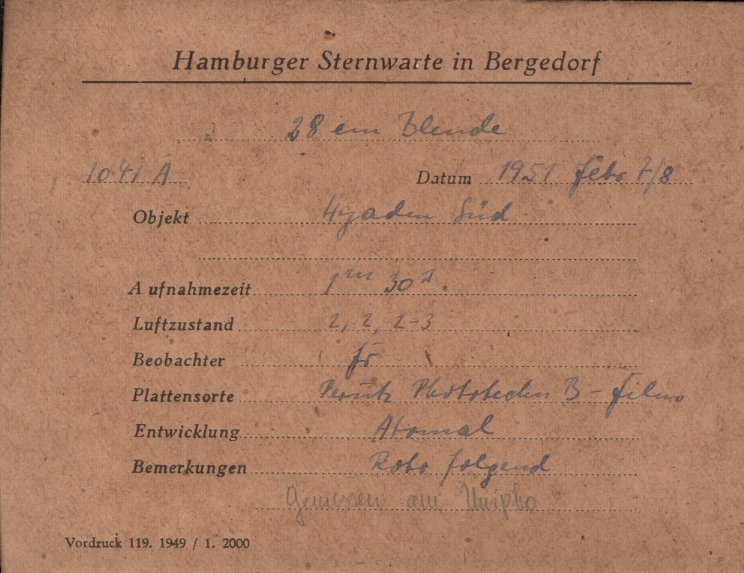 Hamburger Sternwarte in Bergedorf
28 cm Blende
1041 A Datum 1951 Febr 7/8
Objekt Hyaden Süd
Aufnahmezeit 1m 30s
Luftzustand 2, 2, 2-3
Beobachter
Plattensorte Perutz Phototechn B - Film
Entwicklung Atomal
Bemerkungen Rohr folgend
Gemessen am
Vordruck 119. 1949 / 1. 2000